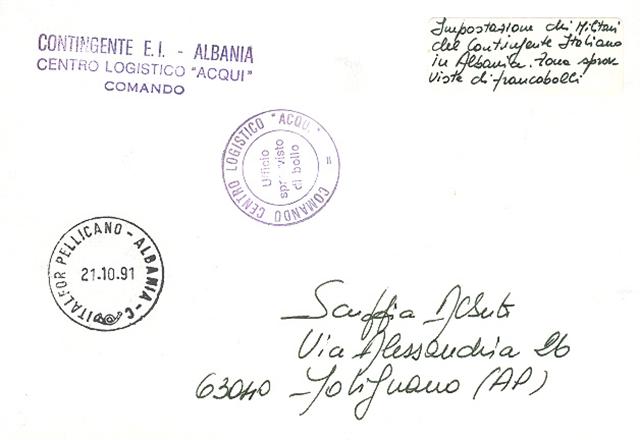 CONTINGENTE E.I. - ALBANIA
CENTRO LOGISTICO "ACQUI"
COMANDO
Impostazione dei Militari
del Contingente Italiano
in Albania. Zona sprov
vista di francobolli
COMANDO CENTRO LOGISTICO "ACQUI" =
Ufficio
sprovvisto
di bollo
ITALFOR PELLICANO - ALBANIA - C
21.10.91
Scuffia Alberto
Via Alessandria 26
63040 - Folignano (AP)